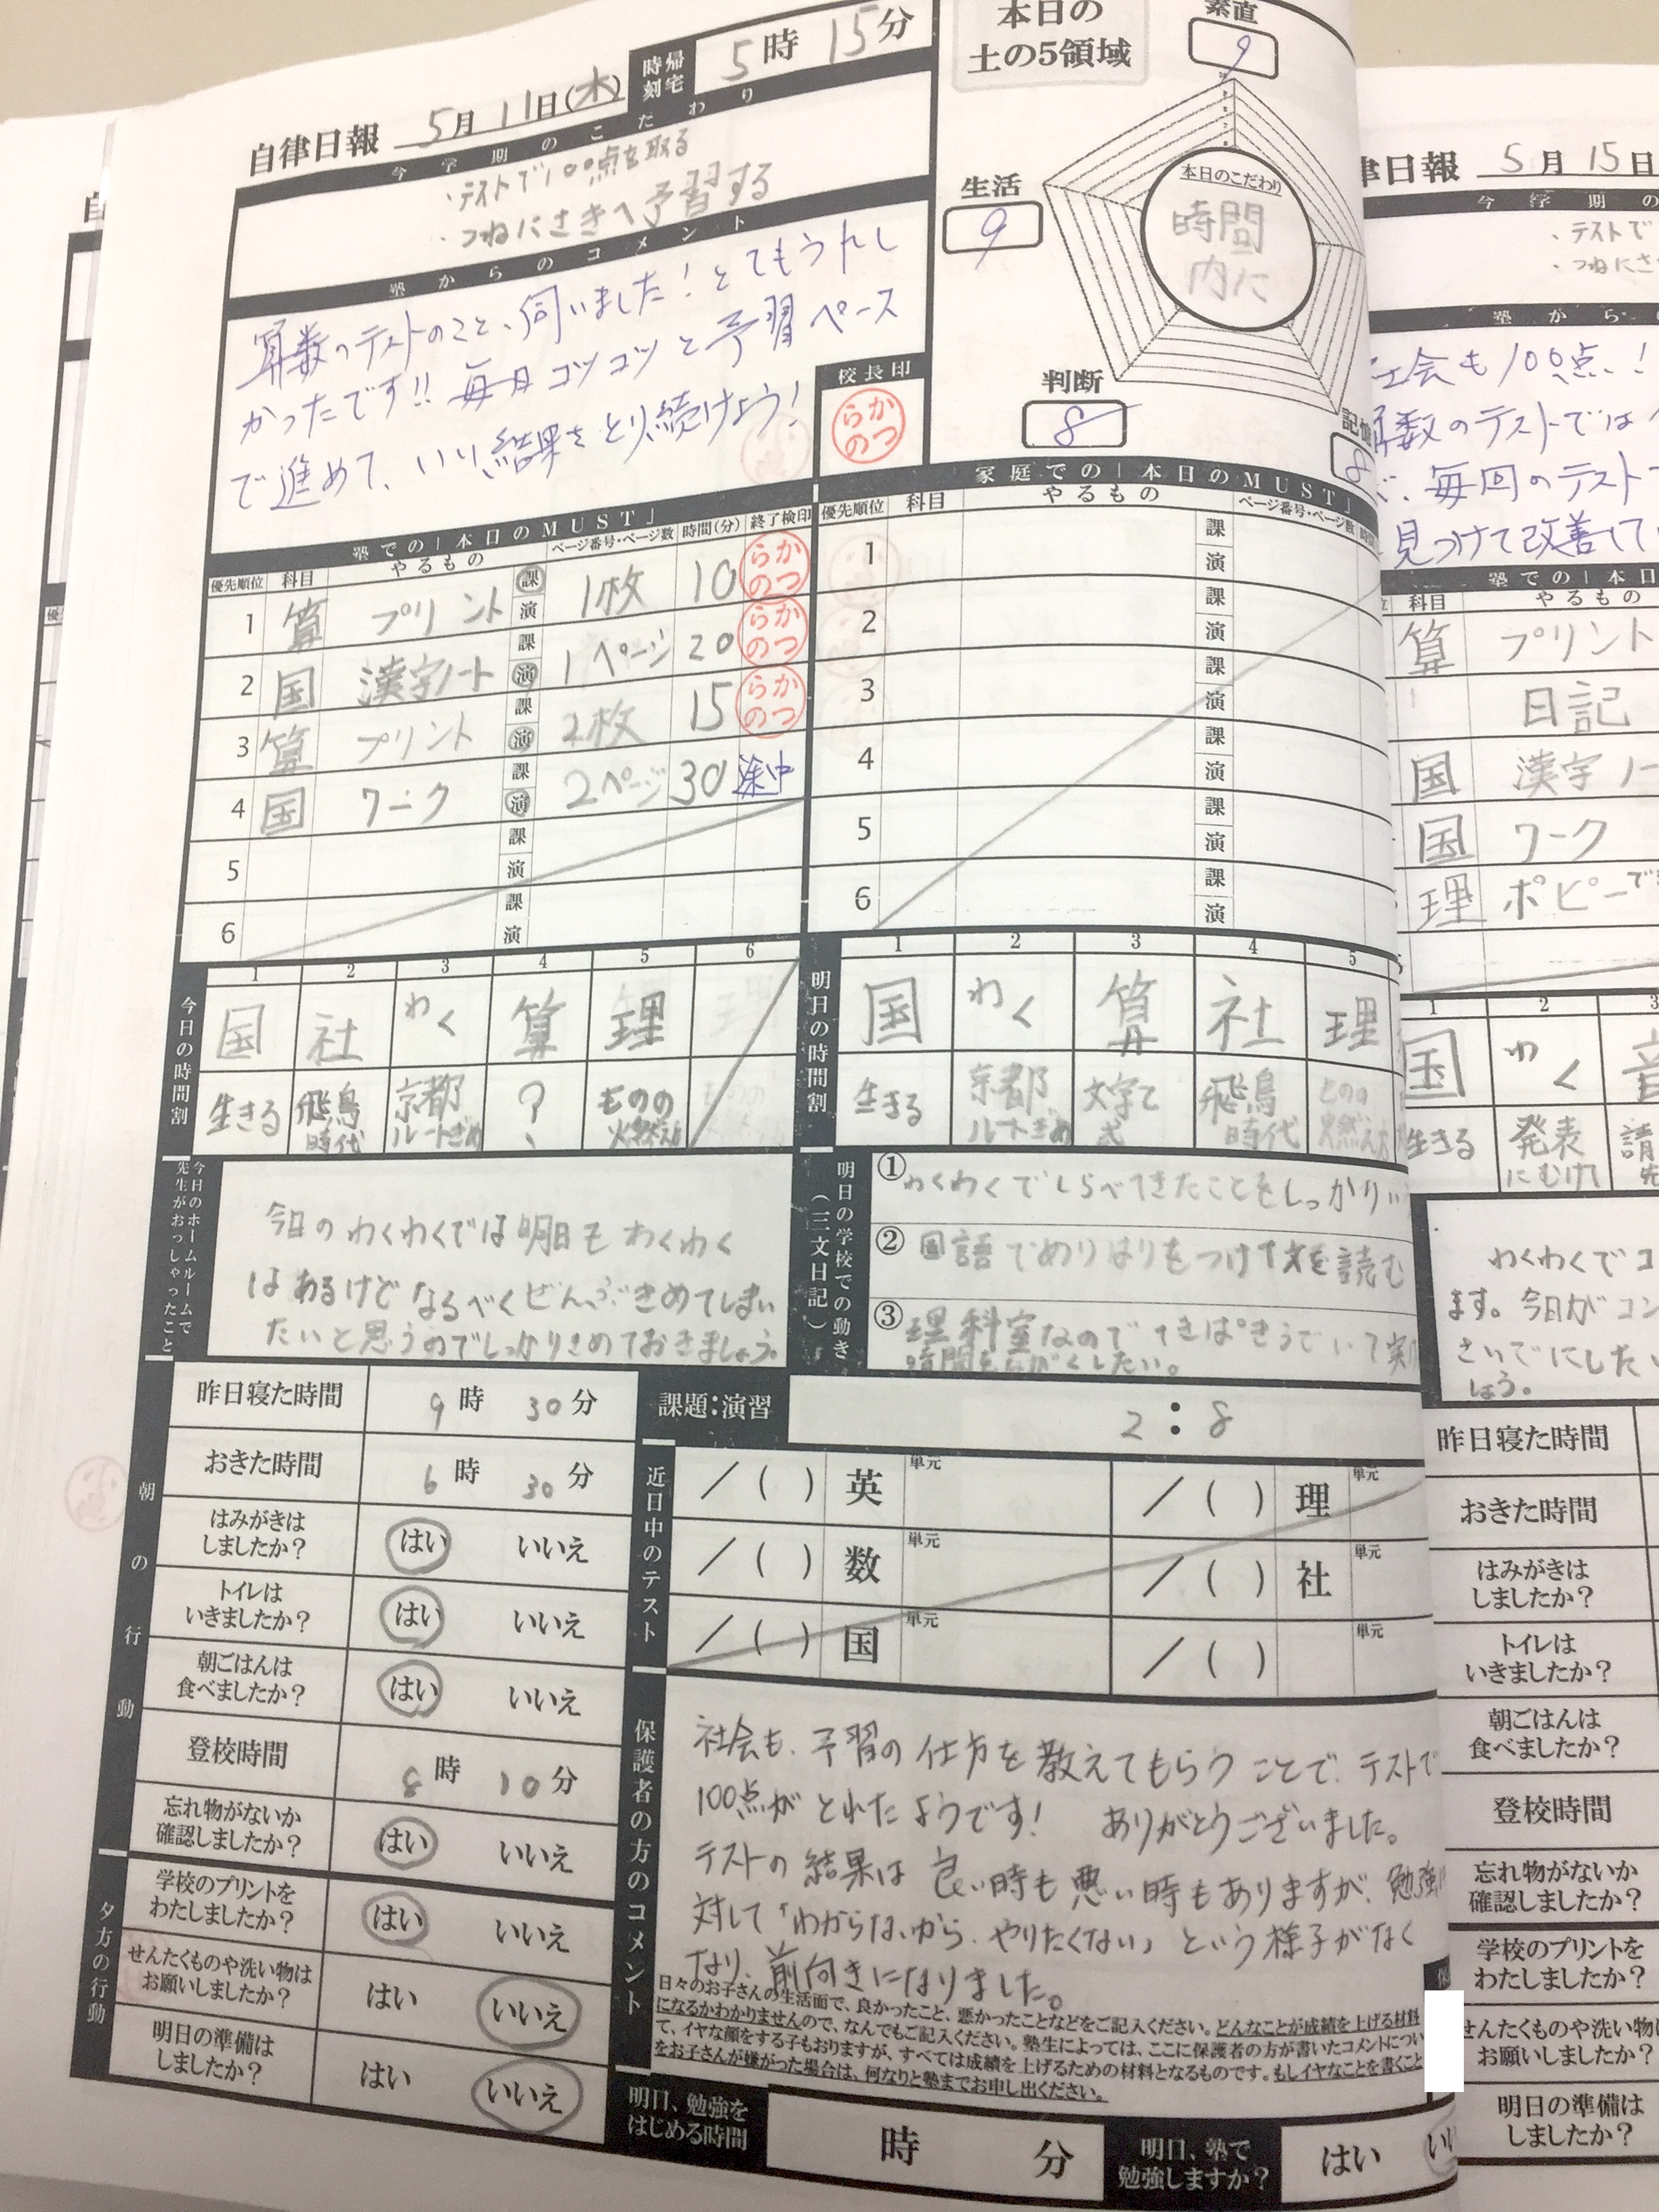 自律日報 5月11日(水)
帰宅時刻 5時15分
今学期のこだわり
・テストで100点を取る
・つねにさきへ予習する
塾からのコメント
算数のテストのこと、伺いました！とてもうれし
かったです!!毎日コツコツと予習ペース
で進めて、いい結果をとり続けよう！
校長印
らかのつ
本日の
土の5領域
素直
9
生活
9
判断
8
8
本日のこだわり
時間
内に
塾での「本日のMUST」
優先順位 科目 やるもの ページ番号・ページ数 時間(分) 終了検印
1 算 プリント 課 演 1枚 10 らかのつ
2 国 漢字ノート 課 演 1ページ 20 らかのつ
3 算 プリント 課 演 2枚 15 らかのつ
4 国 ワーク 課 演 2ページ 30 途中
5 課 演
6 課 演
家庭での「本日のMUST」
優先順位 科目 やるもの ページ番号・ページ数
1 課 演
2 課 演
3 課 演
4 課 演
5 課 演
6 課 演
今日の時間割
1 2 3 4 5 6
国 社 わく 算 理
生きる 飛鳥時代 京都ルートぎめ ？ ものの燃え方
明日の時間割
1 2 3 4 5
国 わく 算 社 理
生きる 京都ルートぎめ 文字と式 飛鳥時代 ものの燃え方
今日のホームルームで
先生がおっしゃったこと
今日のわくわくでは明日もわくわく
はあるけどなるべくぜんぶきめてしまい
たいと思うのでしっかりきめておきましょう。
明日の学校での動き
（三文日記）
①わくわくでしらべてきたことをしっかり
②国語でめりはりをつけて文を読む
③理科室なので
朝の行動
昨日寝た時間 9時30分
おきた時間 6時30分
はみがきは
しましたか？ はい いいえ
トイレは
いきましたか？ はい いいえ
朝ごはんは
食べましたか？ はい いいえ
登校時間 8時10分
忘れ物がないか
確認しましたか？ はい いいえ
夕方の行動
学校のプリントを
わたしましたか？ はい いいえ
せんたくものや洗い物は
お願いしましたか？ はい いいえ
明日の準備は
しましたか？ はい いいえ
課題：演習 2：8
近日中のテスト
／（ ） 英 単元 ／（ ） 理 単元
／（ ） 数 単元 ／（ ） 社 単元
／（ ） 国 単元 ／（ ） 単元
保護者の方のコメント
社会も、予習の仕方を教えてもらうことで、テストで
100点がとれたようです！ ありがとうございました。
テストの結果は良い時も悪い時もありますが、勉強
対して「わからないから、やりたくない」という様子がなく
なり、前向きになりました。
日々のお子さんの生活面で、良かったこと、悪かったことなどをご記入ください。どんなことが成績を上げる材料
になるかわかりませんので、なんでもご記入ください。塾生によっては、ここに保護者の方が書いたコメントについ
て、イヤな顔をする子もおりますが、すべては成績を上げるための材料となるものです。もしイヤなことを書くこと
をお子さんが嫌がった場合は、何なりと塾までお申し出ください。
明日、勉強を
はじめる時間 時 分
明日、塾で
勉強しますか？ はい
律日報 5月15日
今学期の
・テストで
・つねにさ
塾から
社会も100点！
算数のテストでは
毎回のテスト
見つけて改善して
塾での「本日
科目 やるもの
算 プリント
日記
国 漢字ノー
国 ワーク
理 ポピー
1 2 3
国 わく 音
生きる 発表にむけて
わくわくでコ
ます。今日がコン
さいごにしたい
しょう。
昨日寝た時間
おきた時間
はみがきは
しましたか？
トイレは
いきましたか？
朝ごはんは
食べましたか？
登校時間
忘れ物がないか
確認しましたか？
学校のプリントを
わたしましたか？
せんたくものや洗い物
お願いしましたか？
明日の準備は
しましたか？